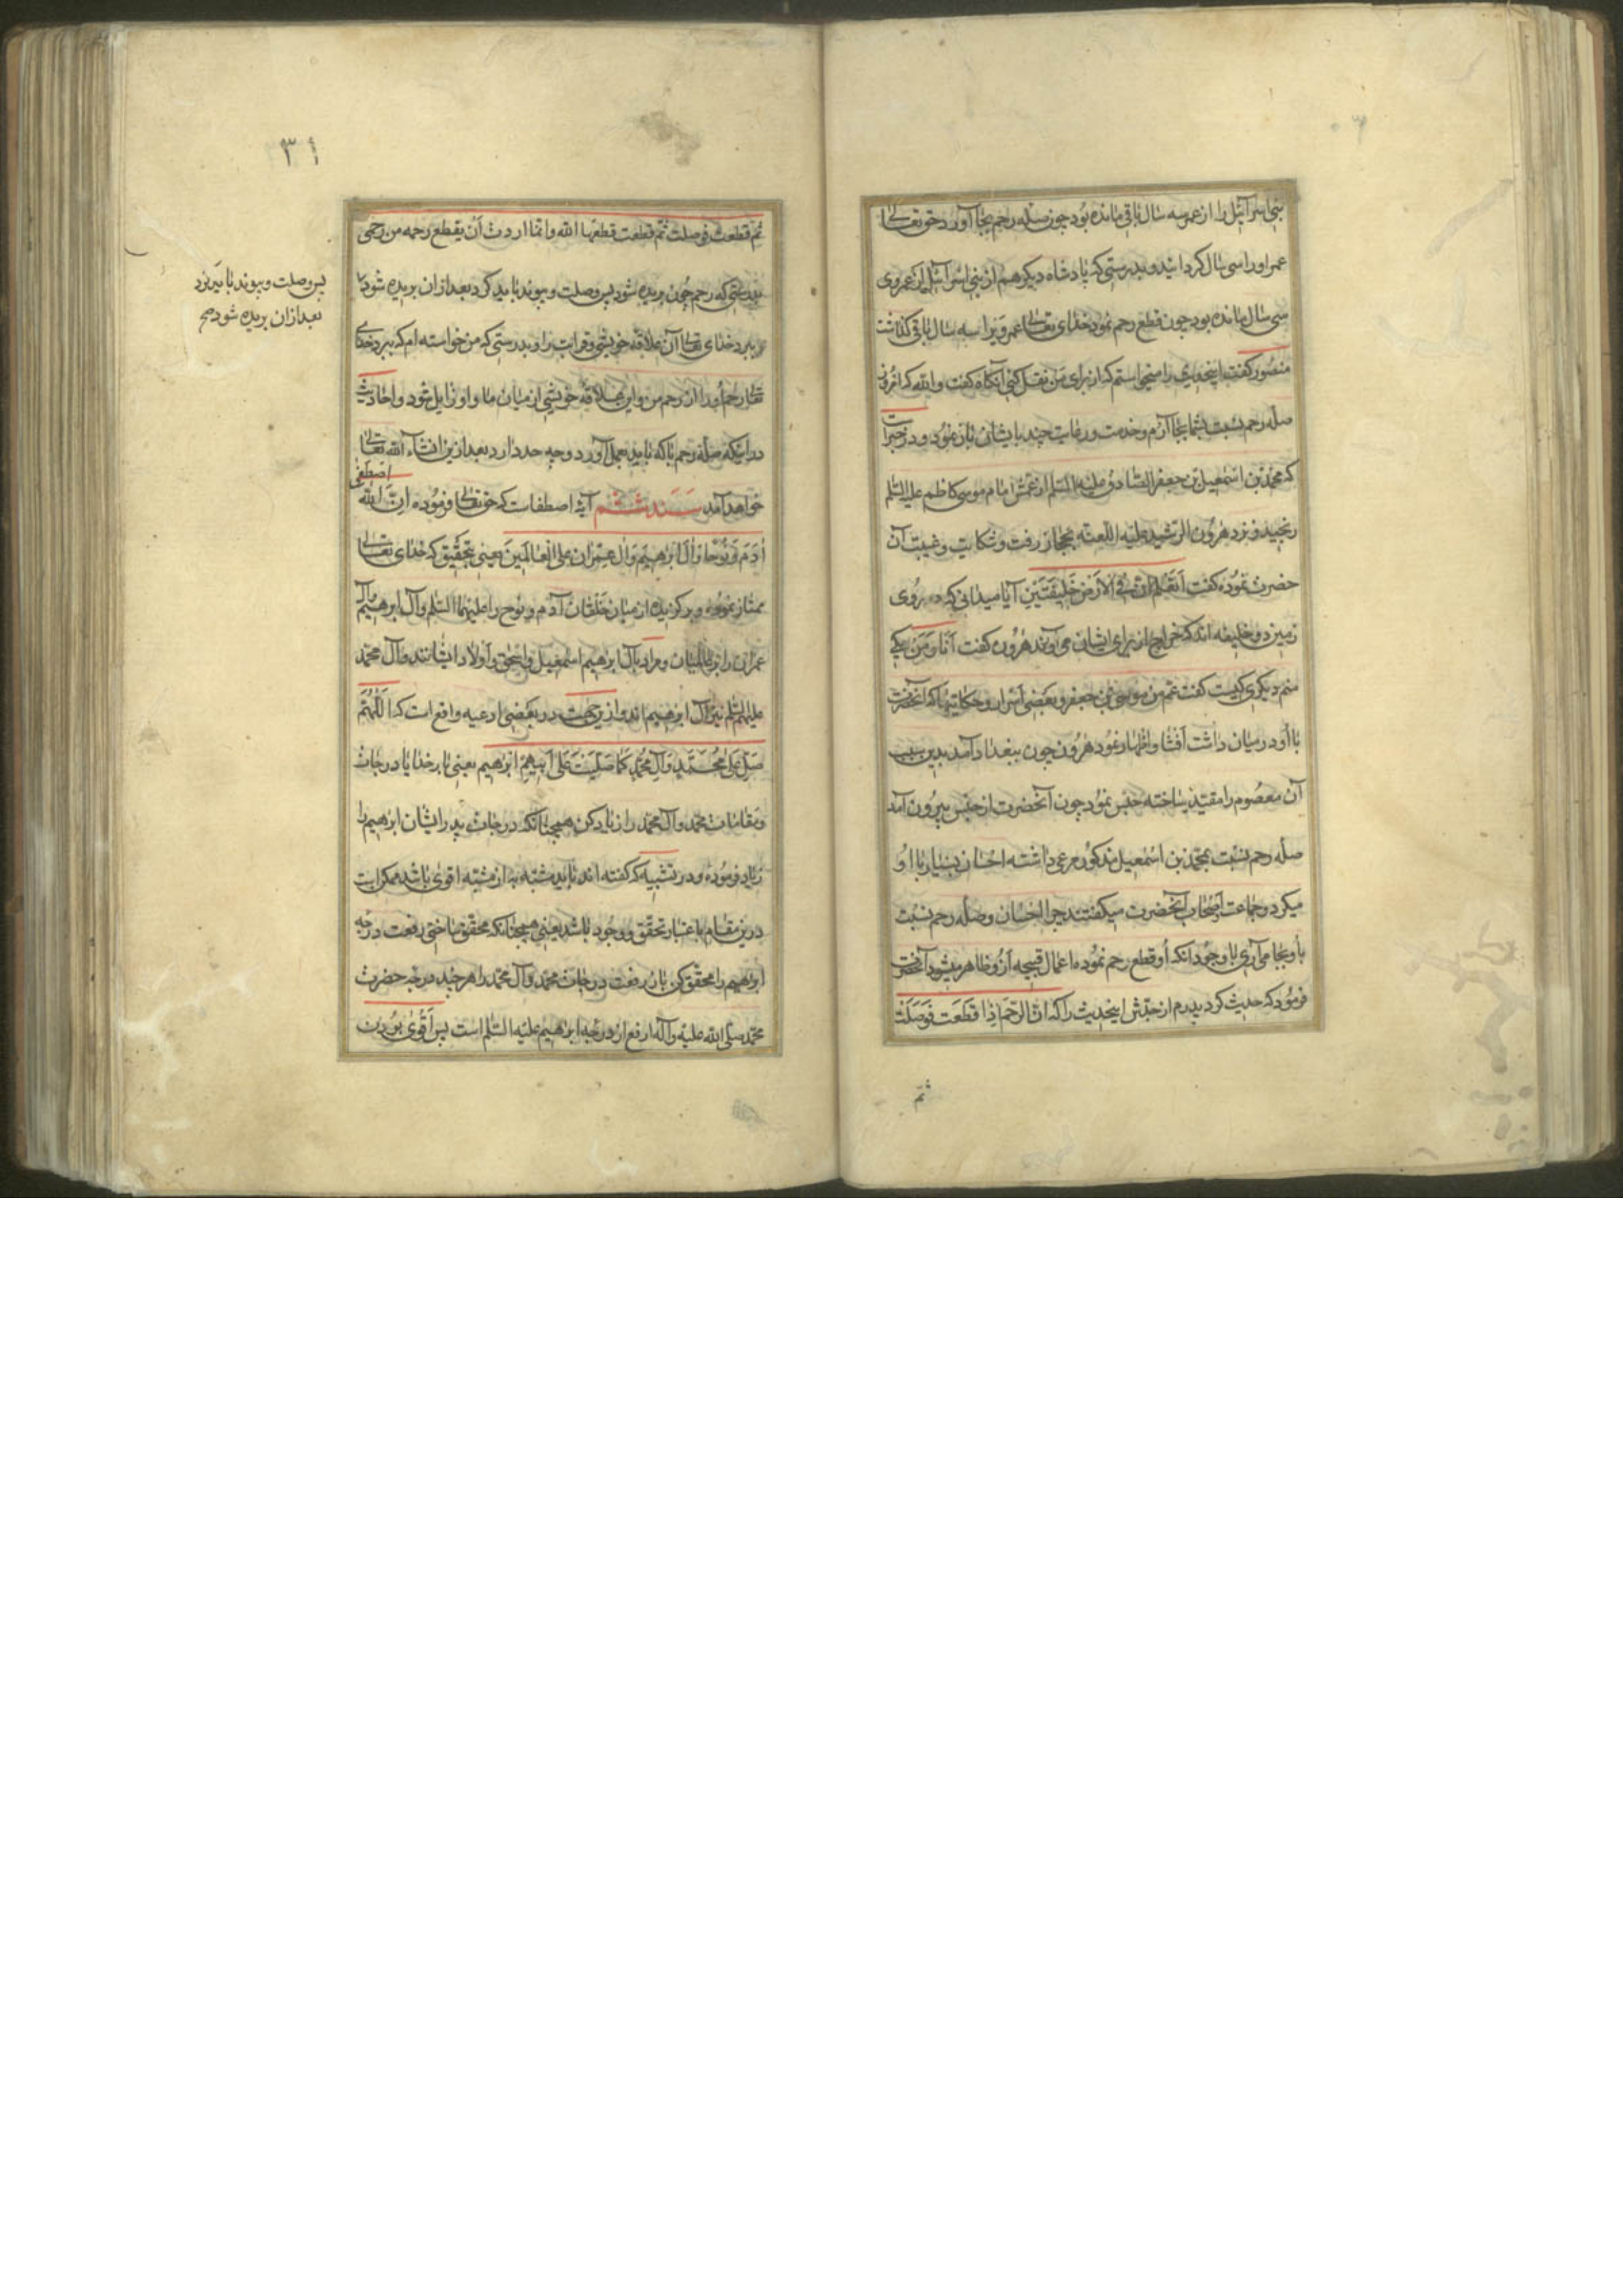 بنی اسرائیل را از عمر سه سال باقی مانده بود چون صله رحم بجا آورد حق تعالی
عمر او را سی سال گردانید و بدرستی که پادشاه دیگر هم از بنی اسرائیل از عمر وی
سی سال مانده بود چون قطع رحم نمود خدای تعالی عمر ویرا سه سال باقی گذاشت
منصور گفت اینحدیث را میخواستم که از برای من نقل کنی آنگاه گفت والله که امروز
صله رحم نسبت بشما بجا آرم و خدمت و رعایت چند بایشان باز نمود و در خبر است
که محمد بن اسمعیل بن جعفر الصادق علیه السلم از عمش امام موسی کاظم علیه السلم
رنجیده نزد هرون الرشید علیه اللعنه بحجاز رفت و شکایت و غیبت آن
حضرت نموده گفت أتعلم ان فی الارض خلیفتین آیا میدانی که در روی
زمین دو خلیفه اند که خراج از برای ایشان می آورند هرون گفت أنا و من یکی
منم دیگری کیست گفت عم من موسی بن جعفر و بعضی اسرار و حکایتها که آنحضرت
با او در میان داشت افشا و اظهار نمود هرون چون ببغداد آمد بدین سبب
آن معصوم را مقید ساخته حبس نمود چون آنحضرت از حبس بیرون آمد
صله رحم نسبت بمحمد بن اسمعیل مذکور مرعی داشته احسان بسیار با او
میکرد و جماعت اصحاب آنحضرت میگفتند چرا احسان و صله رحم نسبت
باو بجا می آری با وجود آنکه او قطع رحم نموده اعمال قبیحه از و ظاهر میشود آنحضرت
فرمود که حدیث کرد پدرم از جدش اینحدیث را که ان الرحم اذا قطعت فوصلت
ثم
۳۱
ثم قطعت فوصلت ثم قطعت قطعها الله وانما اردت أن یقطع رحمه من رحمی
بدرستی که رحم چون بریده شود پس وصلت و پیوند باید کرد بعد از ان بریده شود
ببرد خدای تعالی آن علاقه خویشی و قرابت را و بدرستی که من خواسته ام که ببرد خدای
تعالی رحم او را از رحم من و این علاقه خویشی از میان ما و او زایل شود و احادیث
در اینکه صله رحم با که باید بعمل آورد و چه حد دارد بعد ازین انشاء الله تعالی
خواهد آمد سند ششم آیه اصطفات که حق تعالی فرموده ان الله اصطفی
آدم و نوحا وآل ابرهیم وآل عمران علی العالمین یعنی بتحقیق که خدای تعالی
ممتاز نموده و برگزیده از میان خلقان آدم و نوح را علیهما السلم و آل ابرهیم و آل
عمران را بر عالمیان و مراد بآل ابرهیم اسمعیل و اسحق و اولاد ایشانند و آل محمد
علیهم السلم نیز آل ابرهیم اند و ازین جهت در بعضی ادعیه واقع است که اللهم
صل علی محمد وآل محمد کما صلیت علی ابیهم ابرهیم یعنی بار خدایا درجات
و مقامات محمد و آل محمد را زیاد کن همچنانکه درجات پدر ایشان ابرهیم را
زیاد فرموده و در تشبیه که گفته اند باید مشبه به از مشبه اقوی باشد ممکن است
درین مقام باعتبار تحقق و وجود باشد یعنی همچنانکه محقق ساختی رفعت درجه
ابرهیم را محقق کن باز رفعت درجات محمد و آل محمد را هر چند درجه حضرت
محمد صلی الله علیه وآله ارفع از درجه ابرهیم علیه السلم است پس اقوی بودن
پس وصلت و پیوند باید کرد
بعد از ان بریده شود صح